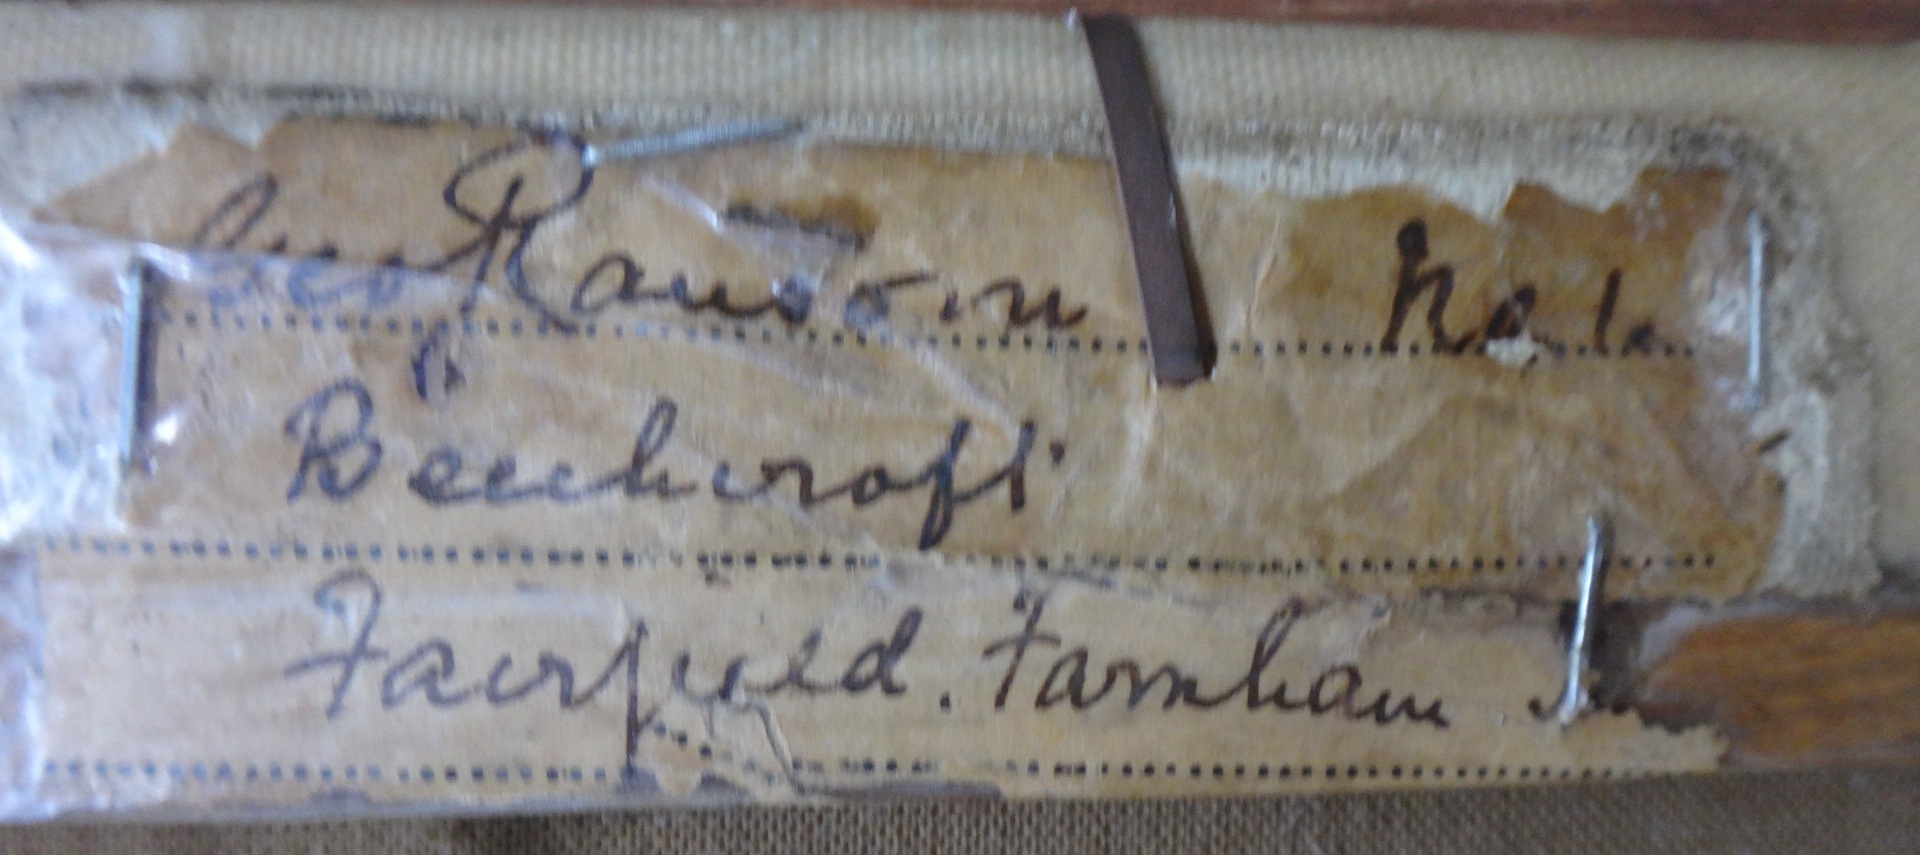 Geo Ransom No 1.
Beechcroft
Fairfield. Farnham